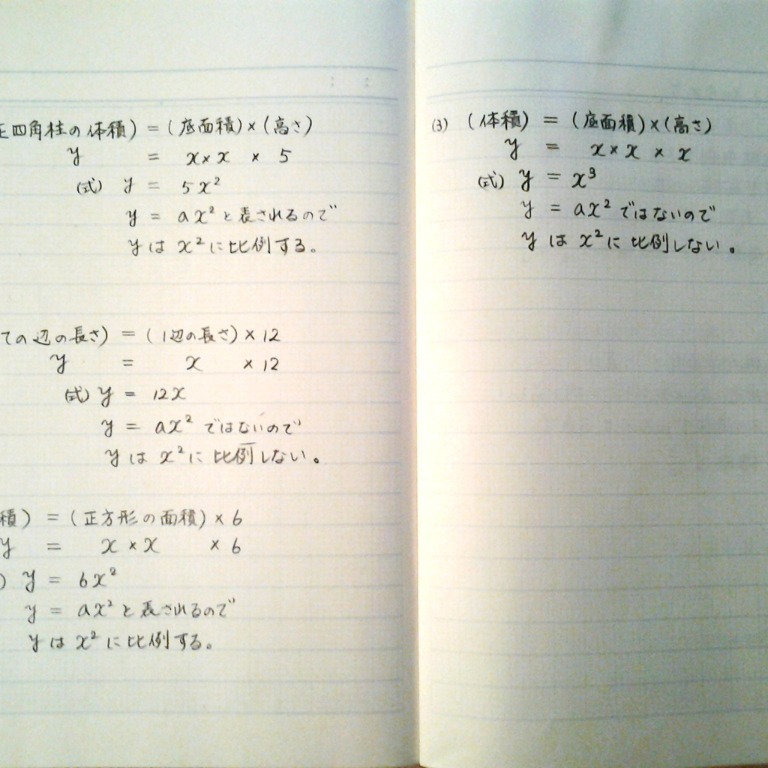 正四角柱の体積) = (底面積)×(高さ)
y = x×x × 5
(式) y = 5x²
y = ax² と表されるので
y は x² に比例する。
ての辺の長さ) = (1辺の長さ)×12
y = x ×12
(式) y = 12x
y = ax² ではないので
y は x² に比例しない。
積) = (正方形の面積)×6
y = x×x ×6
) y = 6x²
y = ax² と表されるので
y は x² に比例する。
(3) (体積) = (底面積)×(高さ)
y = x×x × x
(式) y = x³
y = ax² ではないので
y は x² に比例しない。